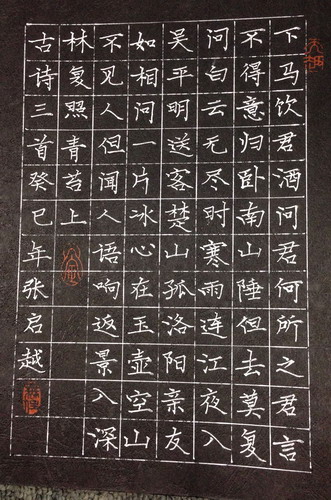 下马饮君酒问君何所之君言
不得意归卧南山陲但去莫复
问白云无尽时寒雨连江夜入
吴平明送客楚山孤洛阳亲友
如相问一片冰心在玉壶空山
不见人但闻人语响返景入深
林复照青苔上
古诗三首癸巳年张启越